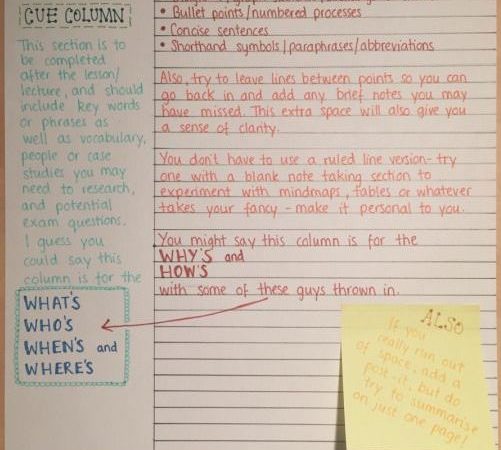 CUE COLUMN
This section is to
be completed
after the lesson/
lecture, and should
include key words
or phrases as
well as vocabulary,
people or case
studies you may
need to research,
and potential
exam questions.
I guess you
could say this
column is for the
WHAT'S
WHO'S
WHEN'S and
WHERE'S
• Bullet points/numbered processes
• Concise sentences
• Shorthand symbols/paraphrases/abbreviations
Also, try to leave lines between points so you can
go back in and add any brief notes you may
have missed. This extra space will also give you
a sense of clarity.
You don't have to use a ruled line version - try
one with a blank note taking section to
experiment with mindmaps, tables or whatever
takes your fancy - make it personal to you.
You might say this column is for the
WHY'S and
HOW'S
with some of these guys thrown in.
ALSO
If you
really run out
of space, add a
post-it, but do
try to summarise
on just one page!